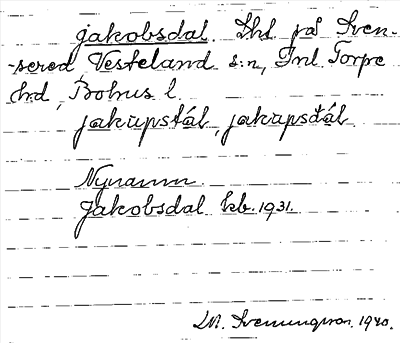 Jakobsdal. Lht på Sven-
-sered Vesteland s:n, Inl. Torpe
hd, Bohus l.
jakupstál, jakupsdál
Nynamn.
Jakobsdal kb. 1931.
1940.